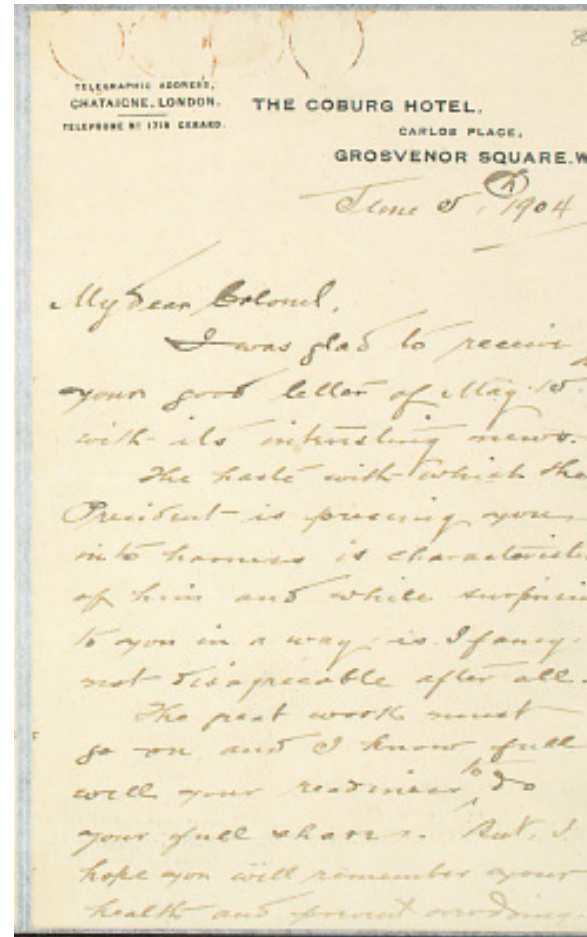 8
TELEGRAPHIC ADDRESS,
CHATAIGNE, LONDON.
TELEPHONE Nº 1718 GERARD.
THE COBURG HOTEL,
CARLOS PLACE,
GROSVENOR SQUARE. W
June 5, 1904
My dear Colonel,
I was glad to receive
your good letter of May 15
with its interesting news.
The haste with which the
President is pressing you
into harness is characteristi
of him and while surprisin
to you in a way, is I fancy
not disagreeable after all.
The great work must
go on and I know full
well your readiness to do
your full share. But, I
hope you will remember your
health and prevent overdoing